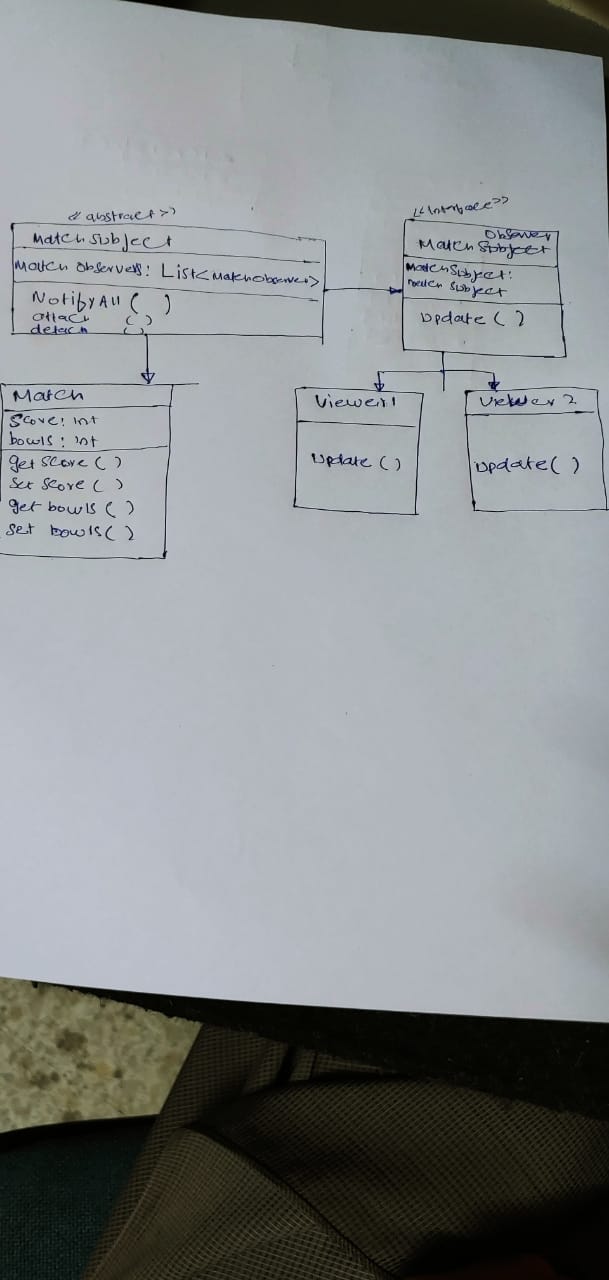 <<abstract>>
Match Subject
Match Observers: List<MatchObserver>
NotifyAll ( )
attach ( )
detach ( )
<<Interface>>
Observer
Match Subject
Match Subject:
Match Subject
Update ( )
Match
Score: int
bowls: int
get Score ( )
Set Score ( )
get bowls ( )
set bowls ( )
Viewer 1
Update ( )
Viewer 2
Update ( )